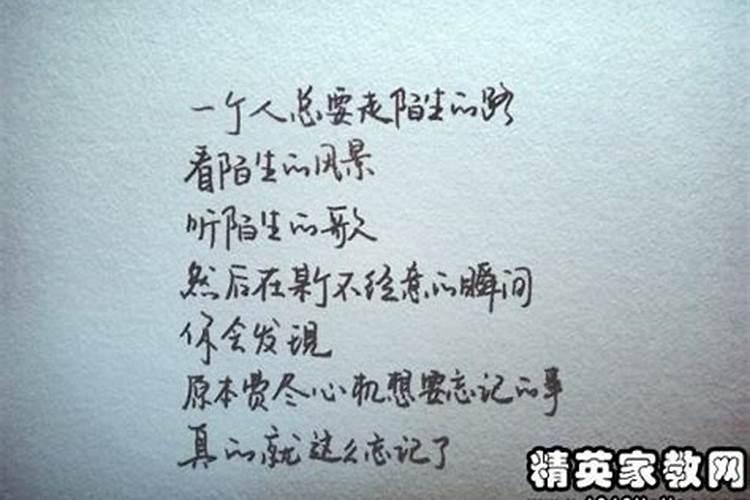 一个人总要走陌生的路
看陌生的风景
听陌生的歌
然后在某个不经意的瞬间
你会发现
原本费尽心机想要忘记的事
真的就这么忘记了
精英家教网